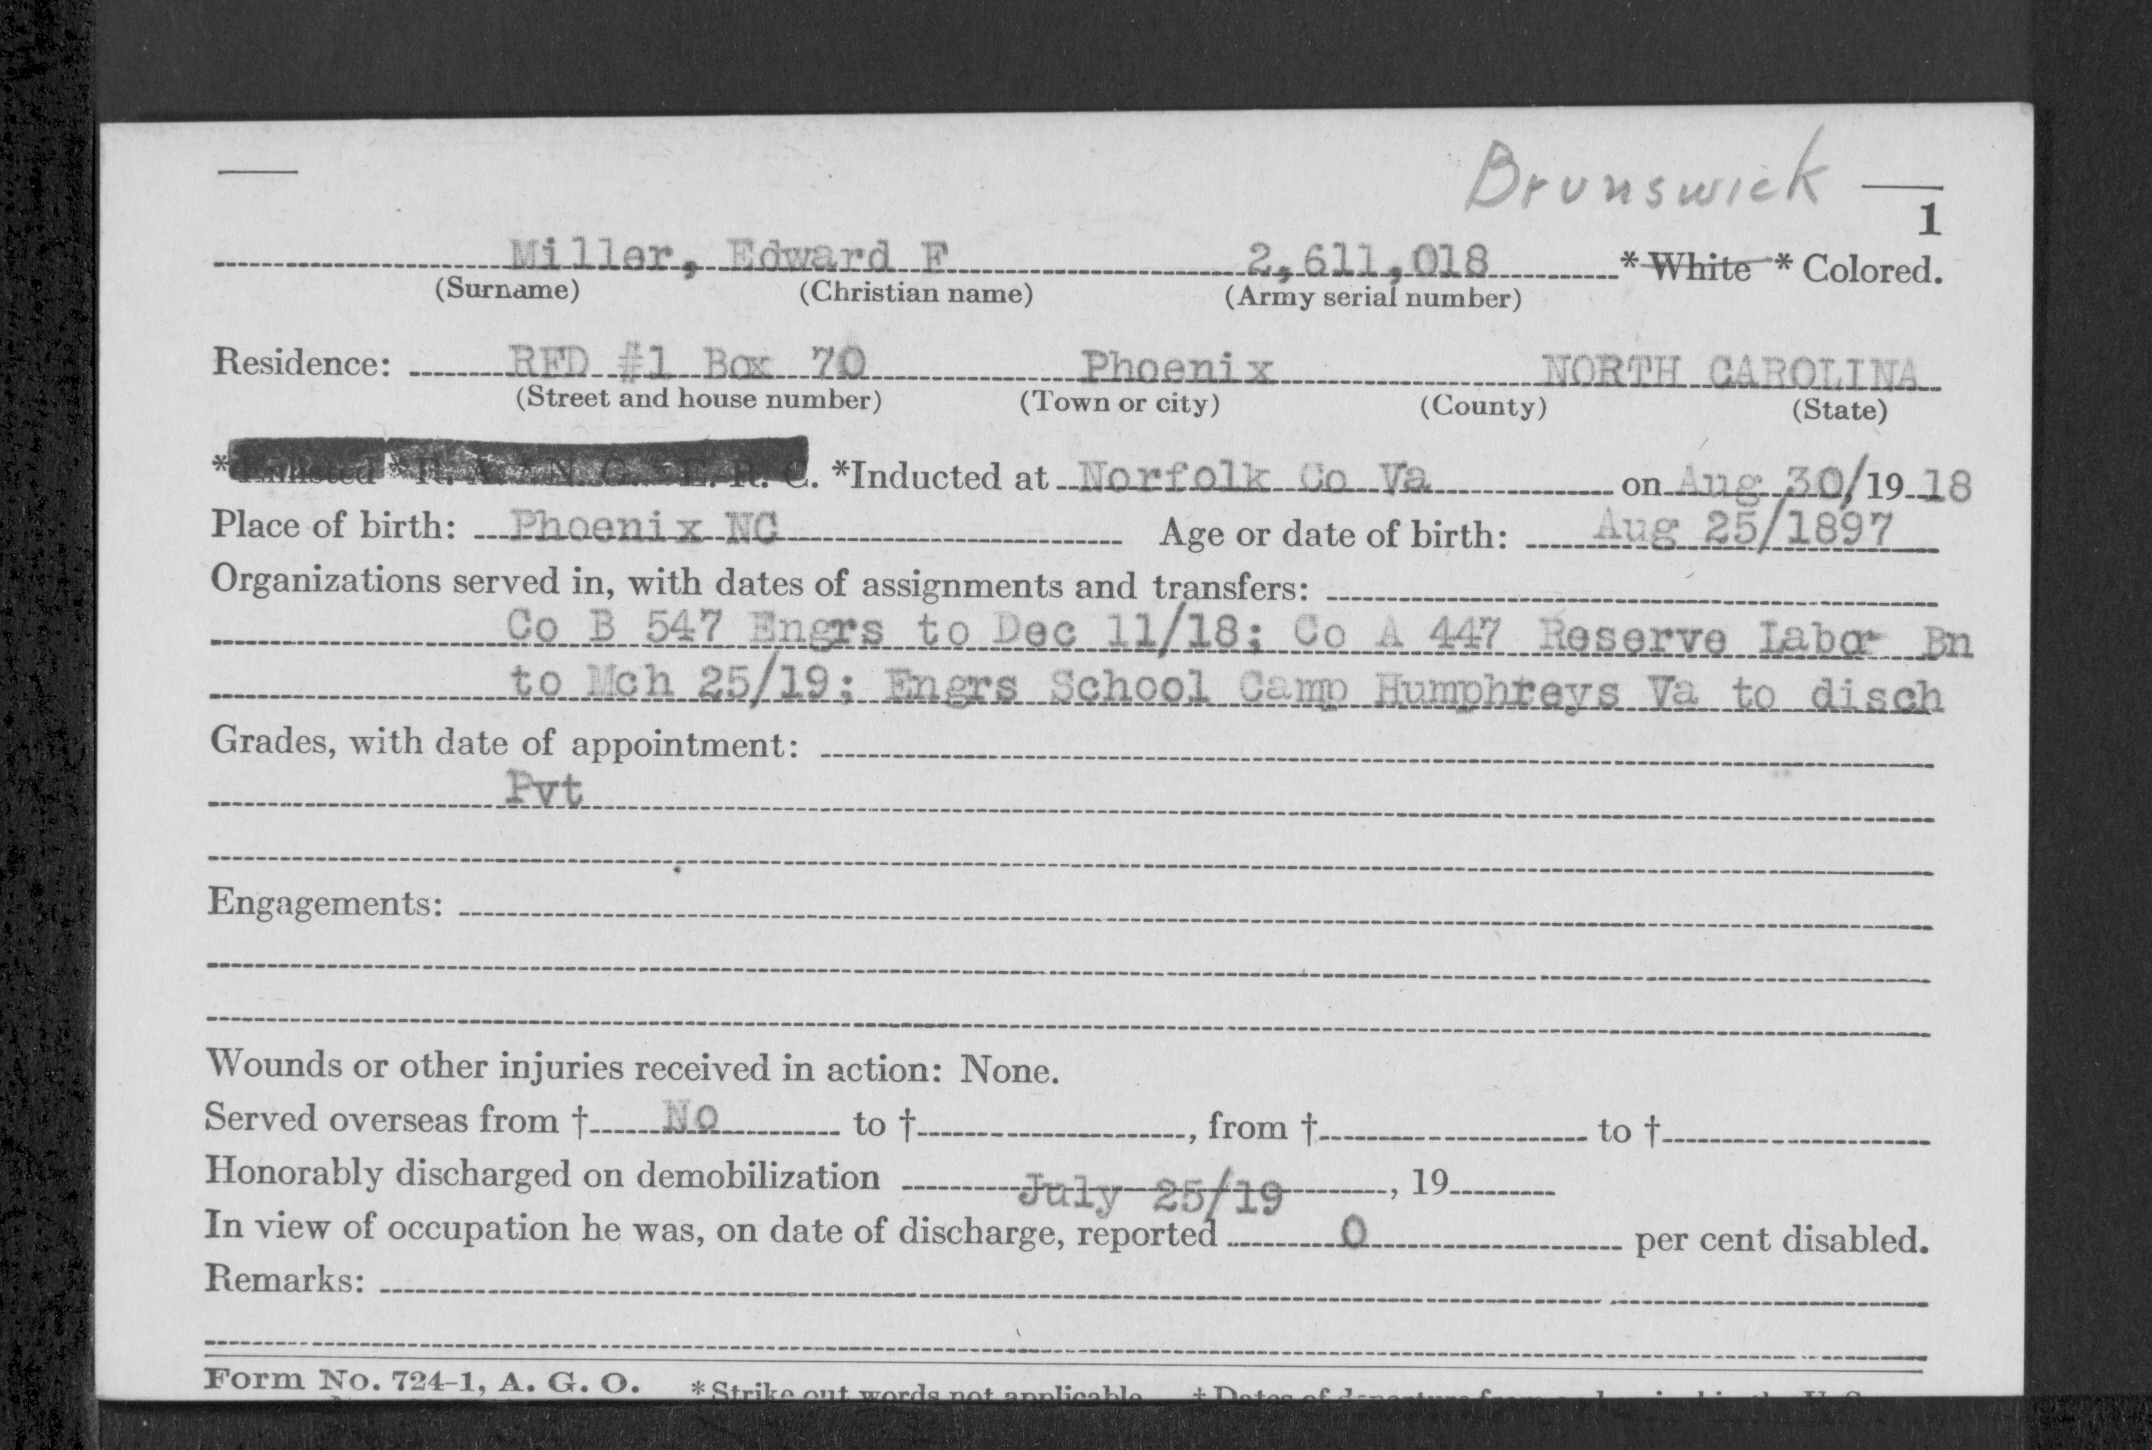 Brunswick
1
Miller, Edward F 2,611,018 * White * Colored.
(Surname) (Christian name) (Army serial number)
Residence: RFD #1 Box 70 Phoenix NORTH CAROLINA
(Street and house number) (Town or city) (County) (State)
*Enlisted * R. A. * N. G. * E. R. C. *Inducted at Norfolk Co Va on Aug 30/, 19 18
Place of birth: Phoenix NC Age or date of birth: Aug 25/1897
Organizations served in, with dates of assignments and transfers:
Co B 547 Engrs to Dec 11/18; Co A 447 Reserve Labor Bn
to Mch 25/19; Engrs School Camp Humphreys Va to disch
Grades, with date of appointment:
Pvt
Engagements:
Wounds or other injuries received in action: None.
Served overseas from † No to †, from † to †
Honorably discharged on demobilization July 25/19, 19
In view of occupation he was, on date of discharge, reported 0 per cent disabled.
Remarks:
Form No. 724-1, A. G. O. *Strike out words not applicable. † Dates of departure from and arrival in the U. S.